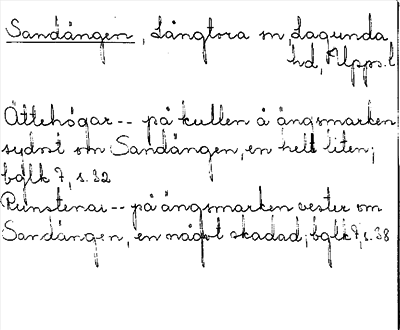 Sandängen, Långtora sn, Lagunda
hd, Upps. l
Ättehögar -- på kullen å ängsmarken
sydost om Sandängen, en helt liten;
bglk 7, s. 32
Runstenar -- på ängsmarken vester om
Sandängen, en något skadad; bglk 7, s. 38